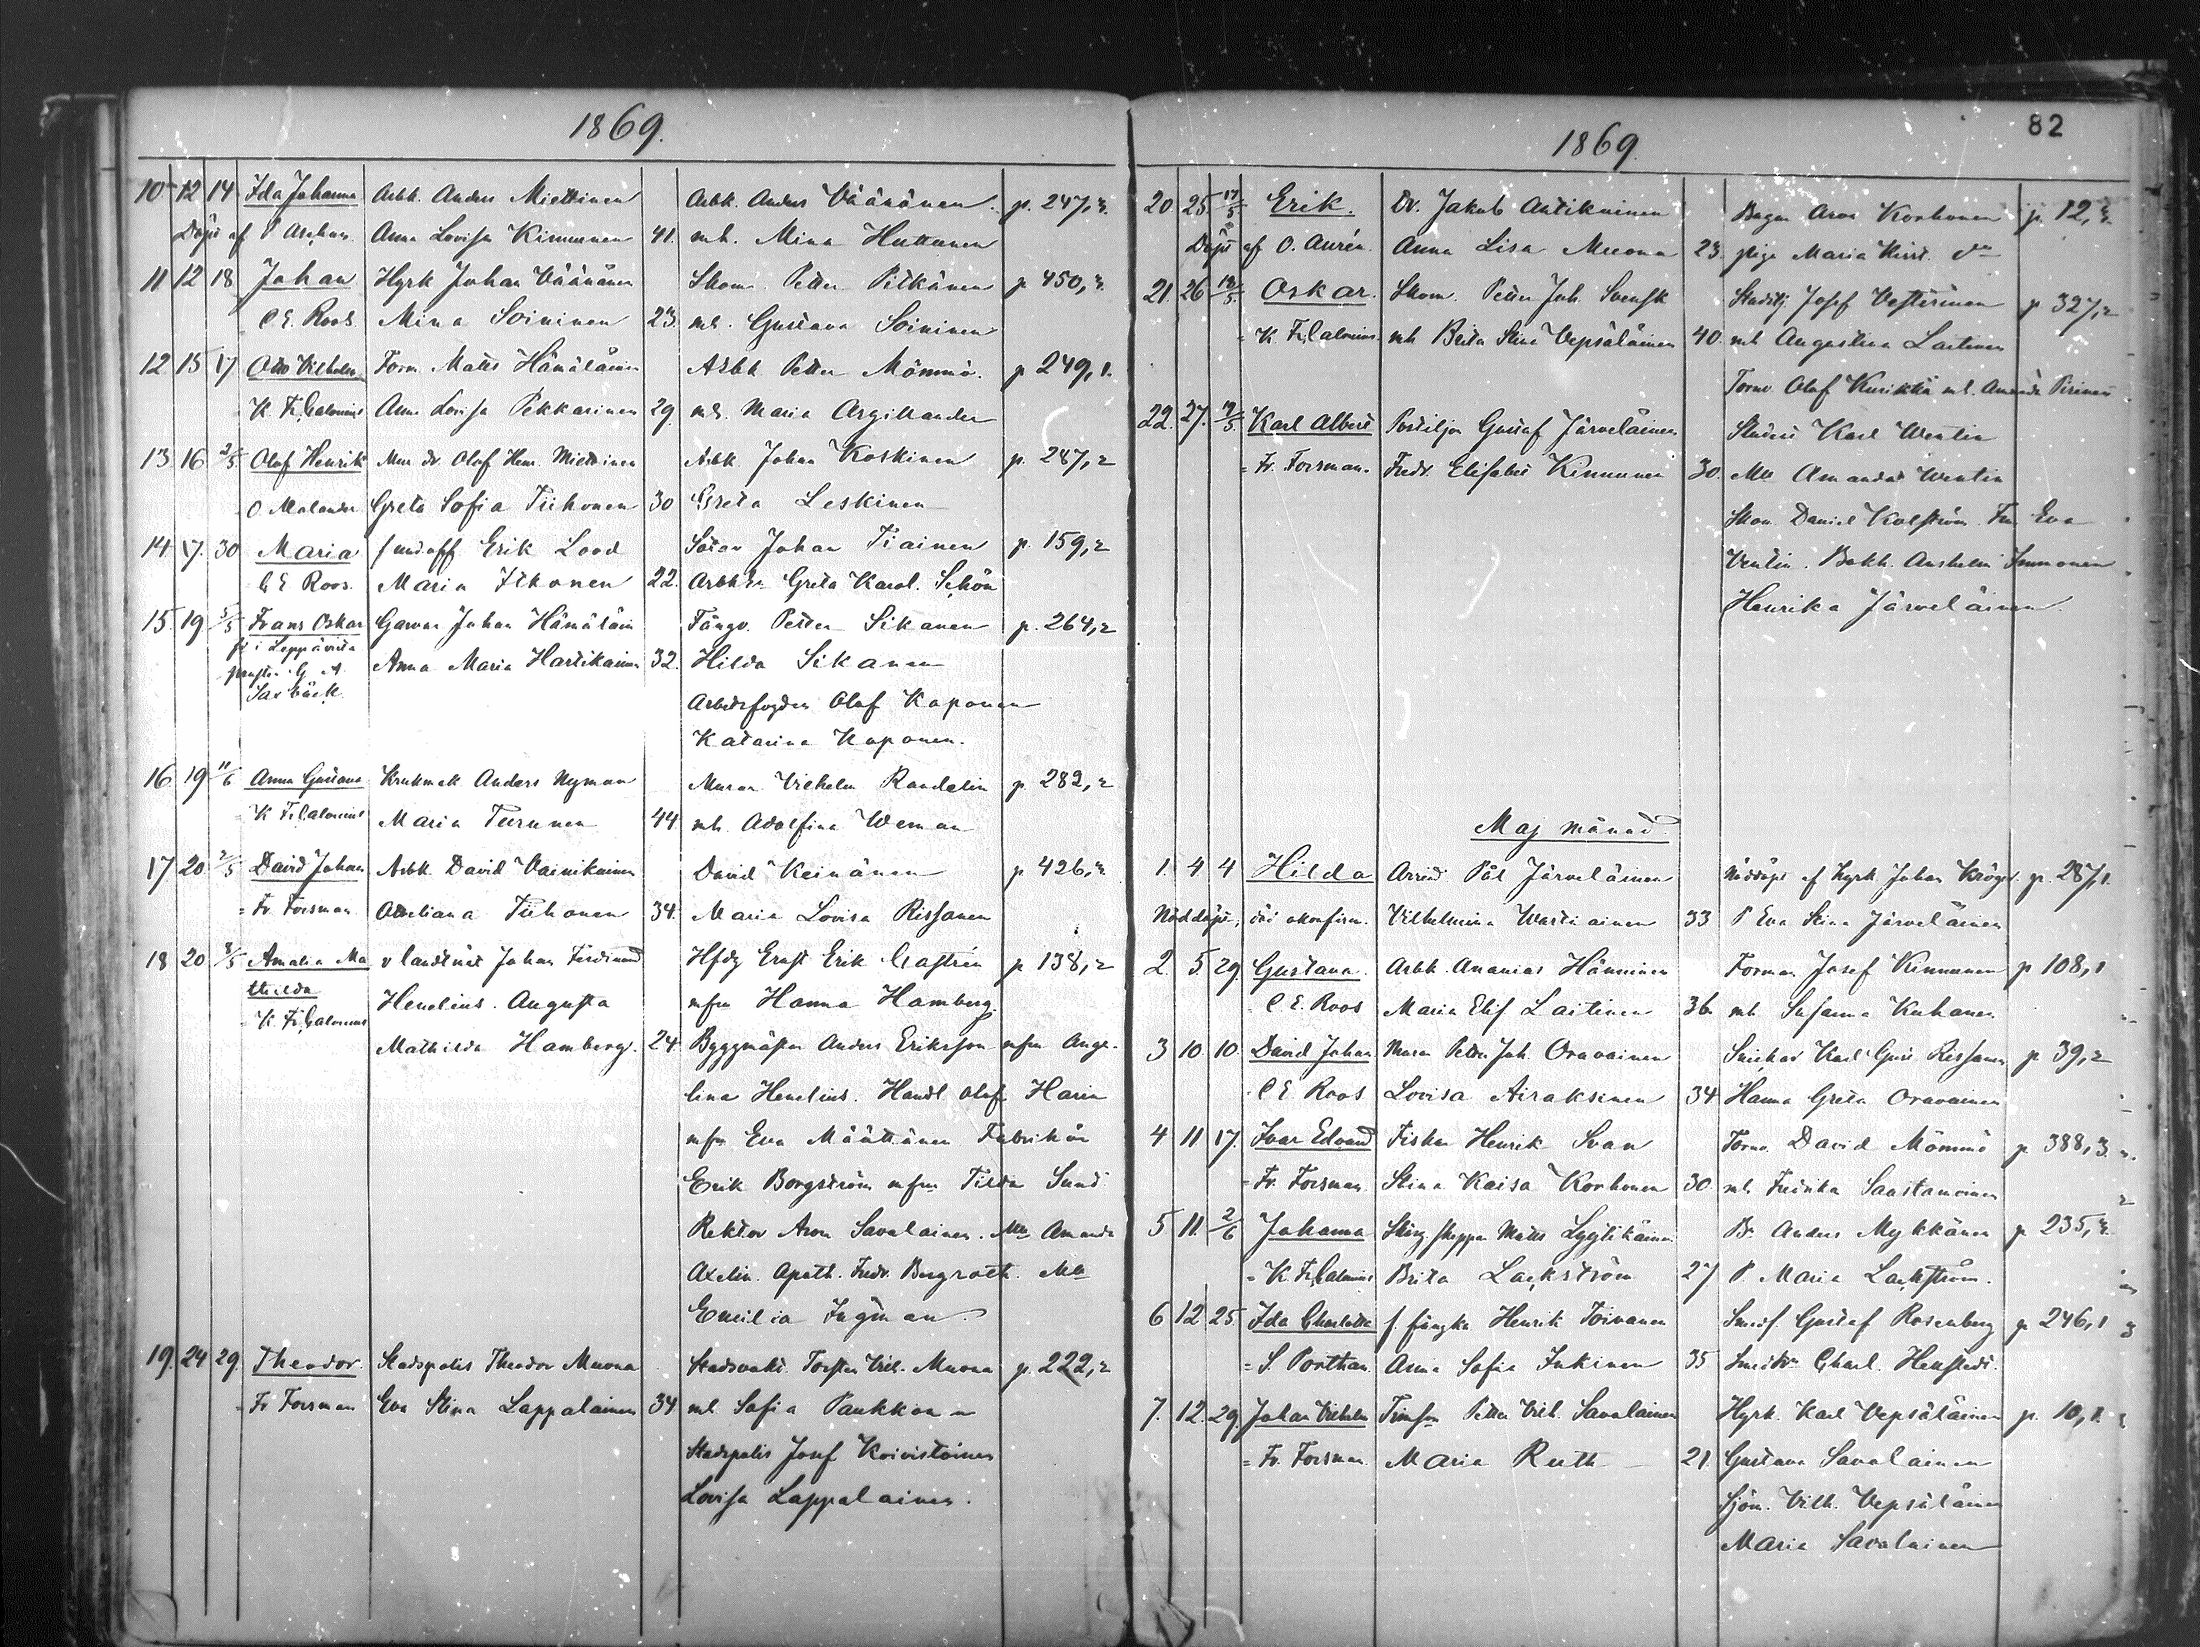 1869.
10 12 14 Ida Johanna Arbk. Anders Miettinen Arbk. Anders Väänänen p. 247,
Döpt af P Anna Lovisa Kinnunen 41. mh. Mina Huttunen
11 12 18 Johan Hyrk Johan Väänänen Skom. Petter Pitkänen p 450,
C E. Roos. Mina Soininen 23. mh. Gustava Soininen
12 15 17 Otto Vilhelm Form. Matts Hämäläinen Arbk Petter Mömmö. p 249,1.
K Fr. Calonius Anna Lovisa Pekkarinen 29. mh. Maria Argillander
13 16 2/5 Olof Henrik Mur dr. Olof Henr. Miettinen Arbk. Johan Koskinen p. 247,2
O Molander Greta Sofia Tiihonen 30 Greta Leskinen
14 17. 30 Maria f undoff Erik Lood Johan Tiainen p. 159,2
C E Roos. Maria Ikonen 22. Greta Karol. Schön
15. 19 5/5 Frans Oskar Garvar Johan Hämäläin Fångv. Petter Sikanen p. 264,2
i Leppävirta Anna Maria Hartikainen 32. Hilda Sikanen
G A
Saxbäck. Arbetsfogden Olof Koponen
Katarina Koponen.
16 19 11/6 Anna Gustava Krukmak Anders Nyman Murar Vilhelm Randelin p 282,2
K Fr. Calonius Maria Turunen 44 mh. Adolfina Weman
17 20. 2/5 David Johan Arbk David Vainikainen David Keinänen p 426,
Fr. Forsman Tiihonen 34. Maria Lovisa Rissanen
18 20 8/5 Amalia Ma v landtnät Johan Ferdinand Hfdg Ernst Erik Castrén p 138,2
thilda Henelius. Augusta mfru Hanna Hamberg
K Fr. Calonius
Mathilda Hamberg. 24 Byggmäster Anders Eriksson mfru Ange-
lina Henelius. Handl Olof Harin
mfru Eva Määttänen Fabrikör
Erik Borgström mfru Tilda Sund
Rektor Aron Savolainen. Mll Amanda
Axelin. Apoth. Fredr. Bergroth. Mll
Emilia Ingman.
19. 24 29. Theodor. Stadspolis Theodor Muona Stadsvakt. Torsten Vilh. Muona p. 222,2
Fr Forsman Eva Stina Lappalainen 34 mh Sofia Paukkonen
Stadspolis Josef Koivistoinen
Lovisa Lappalainen.
82
1869.
20. 25. 17/5 Erik. Dr. Jakob Antikainen Bagar Aron Korhonen p. 12,
Döpt af O. Aurén. Anna Lisa Muona 23. pige Maria
21. 26 Oskar. Skom. Petter Joh. Svensk Josef Vesterinen p 327,2
K Fr. Calonius. mh Brita Stina Vepsäläinen 40. mh Augustina Laitinen
Olof Kurikka mh. Amanda Pirinen
22. 27. Karl Albert Postiljon Gustaf Järveläinen Karl Wentin
Fr. Forsman. Fredr. Elisabet Kinnunen 30. Mll Amanda Wentin
Skom Daniel Kolström Fru Eva
Ventin. Bokh. Anshelm Immonen
Henrika Järveläinen.
Maj månad.
1. 4 4 Hilda Pål Järveläinen Nöddöpt af Hyrk Johan Kröger p. 287,1.
Nöddöpt, Vilhelmina Wartiainen 33 P Eva Stina Järveläinen
2. 5. 29. Gustava. Arbk. Ananias Hänninen Forman Josef Kinnunen p 108,1
C E. Roos Maria Elis Laitinen 36. mh Susanna Kuhanen
3 10 10 David Johan Murar Petter Joh. Oravainen Snickar Karl Gust Rissanen p 39,2
C E Roos Lovisa Airaksinen 34 Hanna Greta Oravainen
4 11 17. Ivar Edvard Fiskar Henrik Svan Form. David Mömmö p 388,3.
Fr. Forsman. Stina Kaisa Korhonen 30. mh Fredrika Saastamoinen
5 11. 2/6 Johanna Matts Lyytikäinen Dr. Anders Mykkänen p 235,
K. Fr. Calonius Brita Lackström 27 P. Maria Lackström.
6 12 25. Ida Charlotta f. Henrik Toivanen Gustaf Rosenberg p 246,1
S. Porthan. Anna Sofia Inkinen 35 Charl. Henstedt.
7. 12. 29. Johan Vilhelm Petter Vilh. Savolainen Hyrk. Karl Vepsäläinen p. 10,1.
Fr. Forsman. Maria Ruth 21. Gustava Savolainen
Sjöm. Vilh. Vepsäläinen
Maria Savolainen